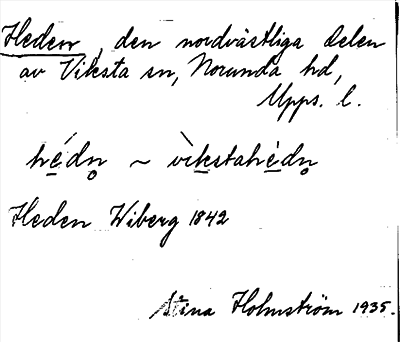 Heden, den nordvästliga delen
av Viksta sn, Norunda hd,
Upps. l.
hé̲dn̥ ~ vìkstahé̲dn̥
Heden Wiberg 1842
Stina Holmström 1935.